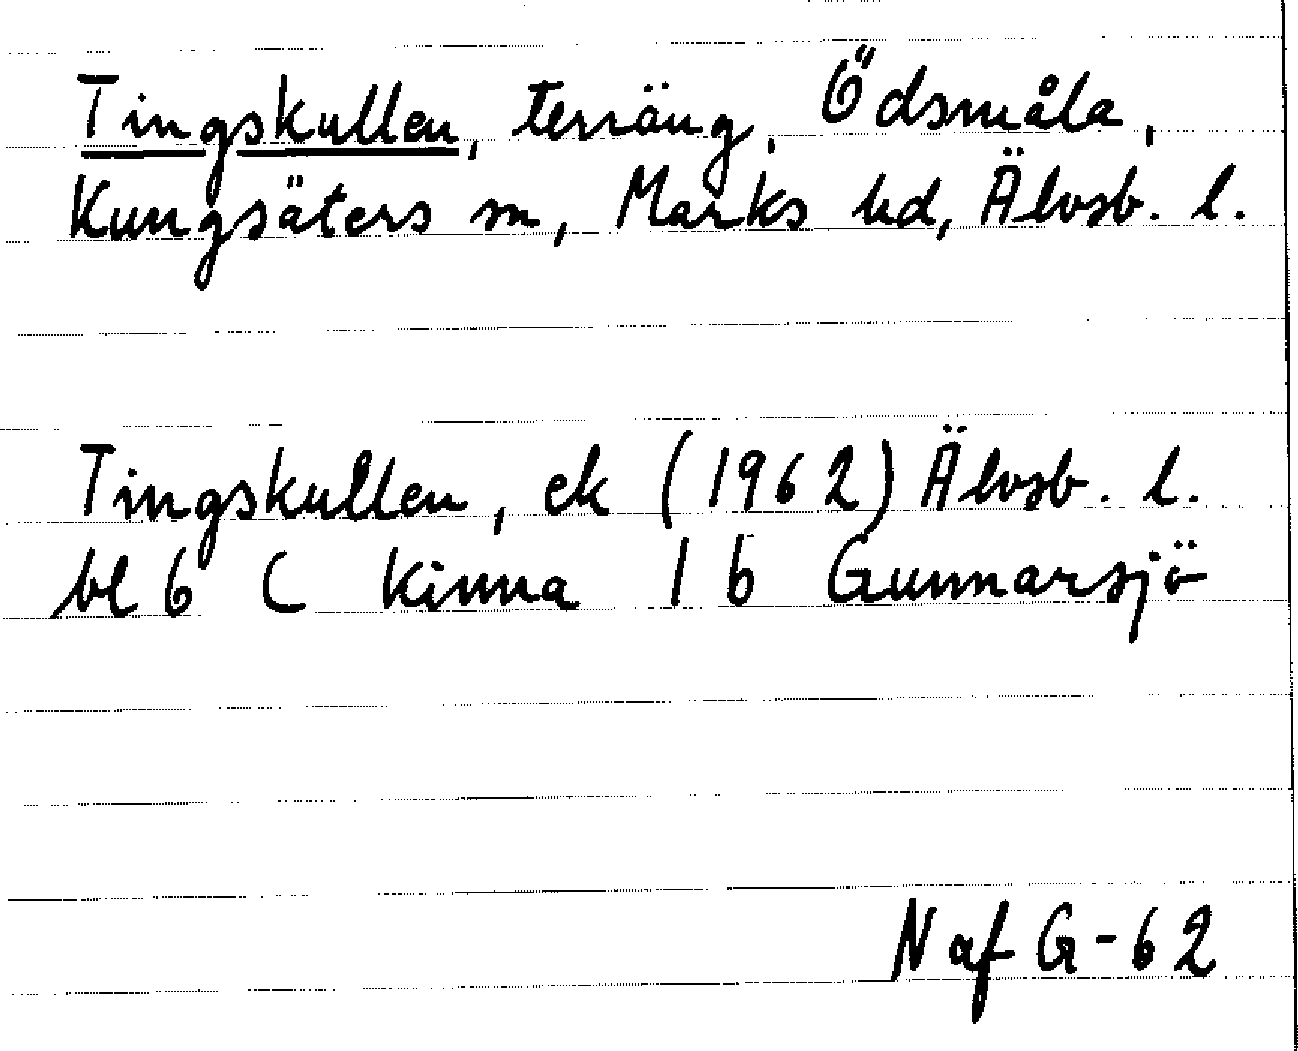 Tingskullen, terräng, Ödsmåla,
Kungsäters sn, Marks hd, Älvsb. l.
Tingskullen, ek (1962) Älvsb. l.
bl 6 C Kinna 1 b Gunnarsjö
N af G-62